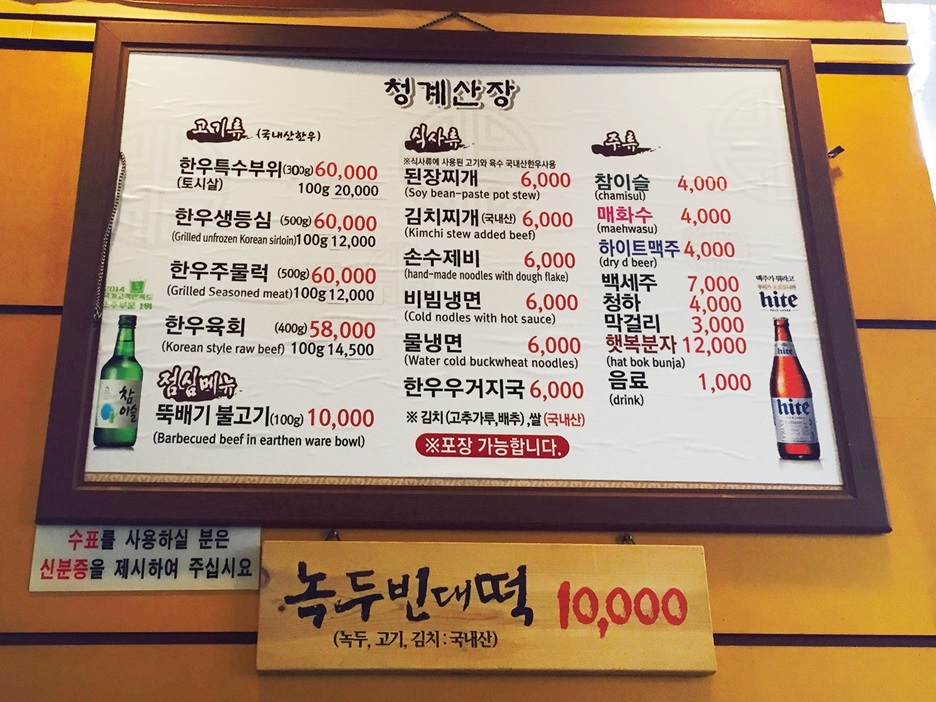 청계산장
고기류 (국내산한우)
한우특수부위(300g) 60,000
(토시살) 100g 20,000
한우생등심 (500g) 60,000
(Grilled unfrozen Korean sirloin) 100g 12,000
한우주물럭 (500g) 60,000
(Grilled Seasoned meat) 100g 12,000
한우육회 (400g) 58,000
(Korean style raw beef) 100g 14,500
점심메뉴
뚝배기 불고기(100g) 10,000
(Barbecued beef in earthen ware bowl)
식사류
※식사류에 사용된 고기와 육수 국내산한우사용
된장찌개 6,000
(Soy bean-paste pot stew)
김치찌개 (국내산) 6,000
(Kimchi stew added beef)
손수제비 6,000
(hand-made noodles with dough flake)
비빔냉면 6,000
(Cold nodles with hot sauce)
물냉면 6,000
(Water cold buckwheat noodles)
한우우거지국 6,000
※ 김치(고추가루,배추),쌀(국내산)
※포장 가능합니다.
주류
참이슬 4,000
(chamisul)
매화수 4,000
(maehwasu)
하이트맥주 4,000
(dry d beer)
백세주 7,000
청하 4,000
막걸리 3,000
햇복분자 12,000
(hat bok bunja)
음료 1,000
(drink)
2014
참이슬
맥주가 뭐라고
hite
hite
hite
수표를 사용하실 분은
신분증을 제시하여 주십시요
녹두빈대떡 10,000
(녹두, 고기, 김치 : 국내산)